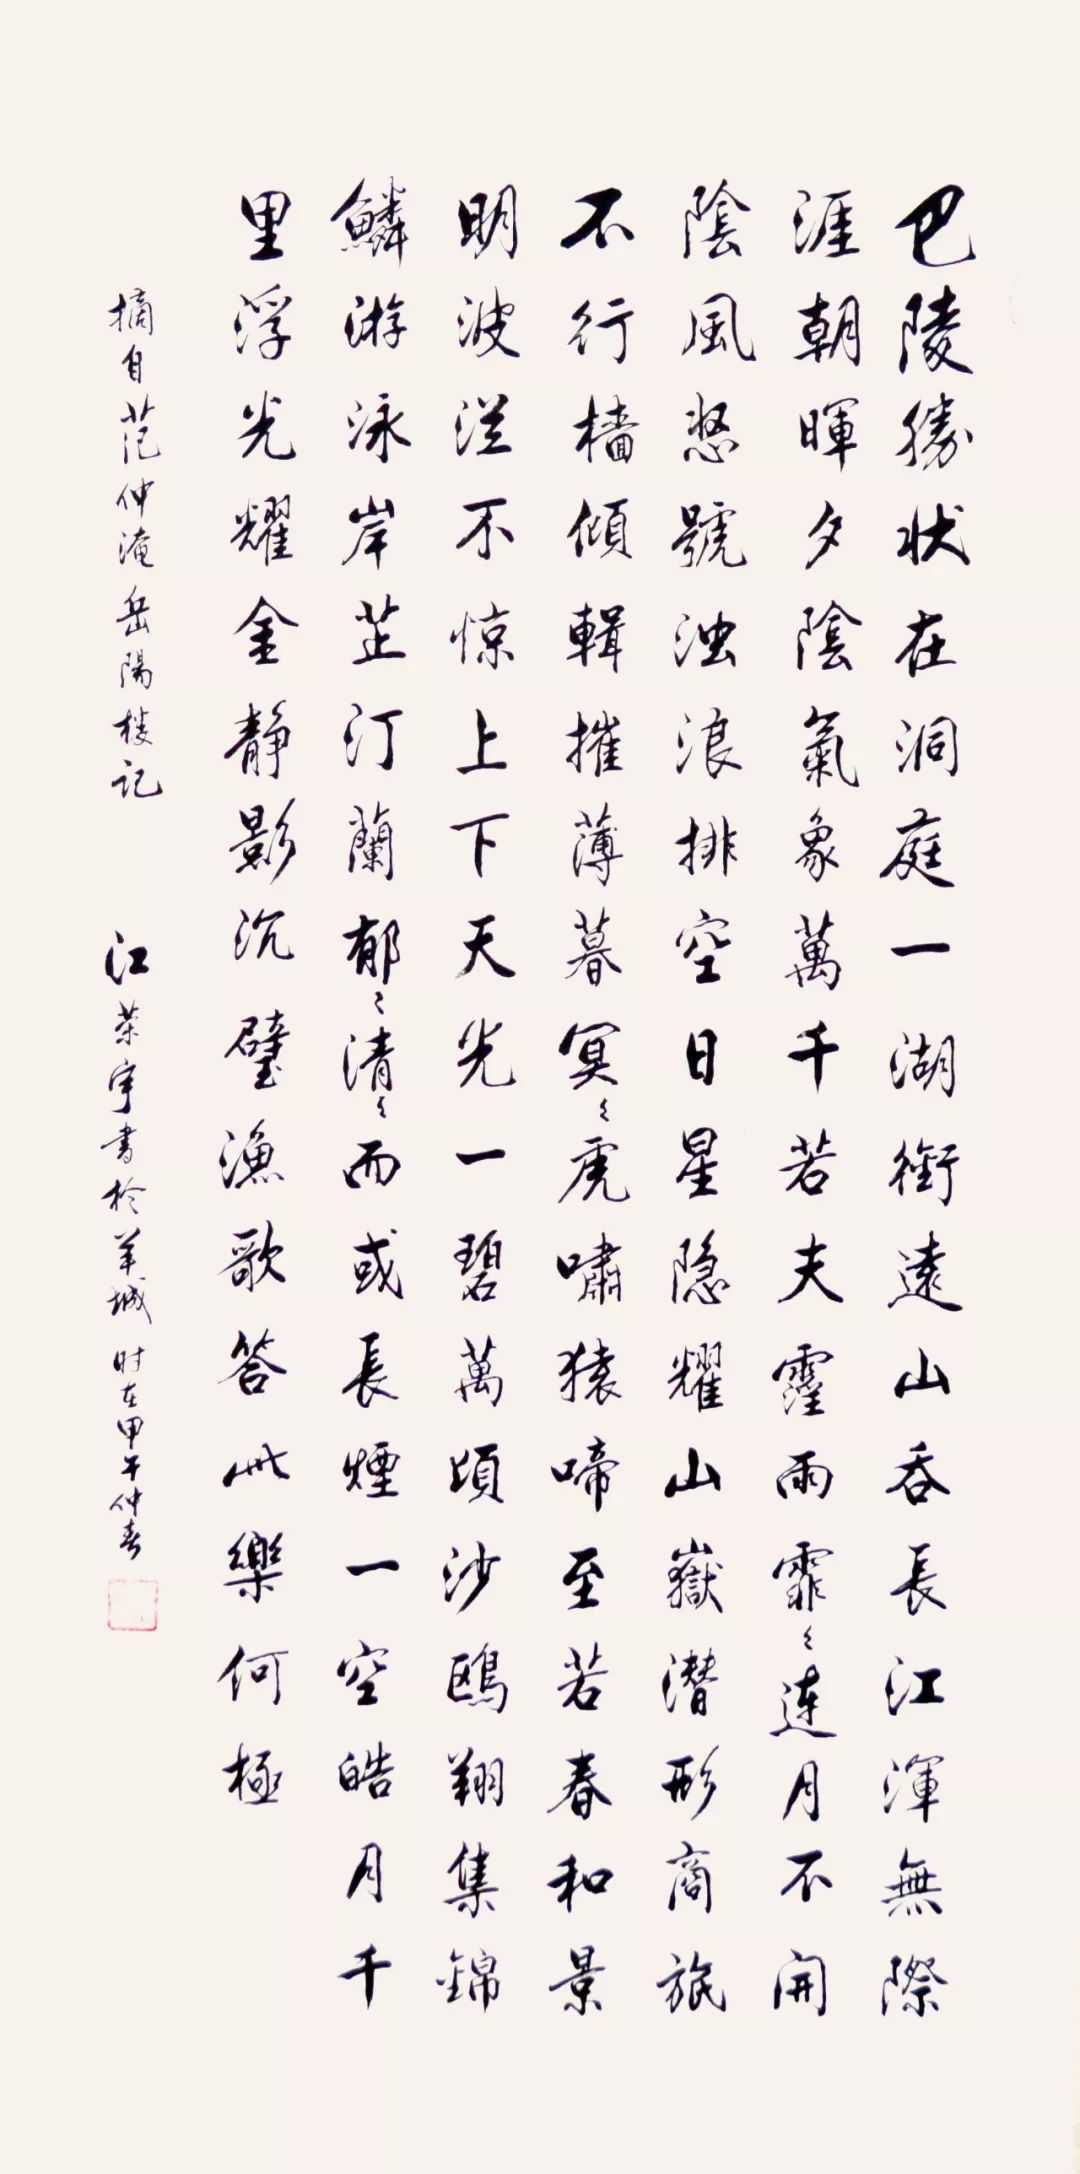 巴陵勝状在洞庭一湖銜遠山吞長江渾無際
涯朝暉夕陰氣象萬千若夫霪雨霏〻連月不開
陰風怒號浊浪排空日星隐耀山嶽潜形商旅
不行檣傾輯摧薄暮冥〻虎嘯猿啼至若春和景
明波淫不惊上下天光一碧萬頃沙鷗翔集錦
鱗游泳岸芷汀蘭郁〻清〻而或長煙一空皓月千
里浮光耀金静影沉璧漁歌答此樂何極
摘自范仲淹岳陽楼记
江荣宇書於羊城时在甲午仲春